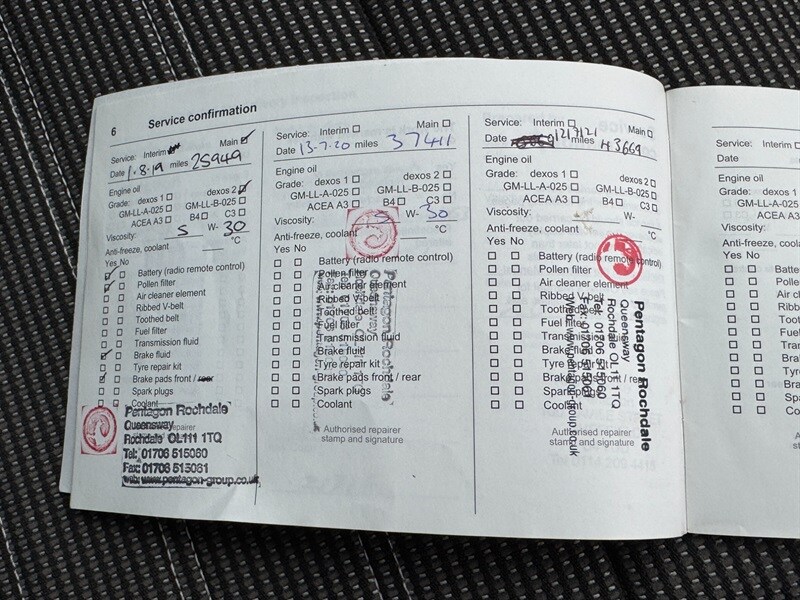 6 Service confirmation
Service: Interim □ Main ☑
Date 1.8.19 miles 25949
Engine oil
Grade: dexos 1 □ dexos 2 ☑
GM-LL-A-025 □ GM-LL-B-025 □
ACEA A3 □ B4 □ C3 □
Viscosity: 5 W- 30
Anti-freeze, coolant °C
Yes No
☑ □ Battery (radio remote control)
☑ □ Pollen filter
□ □ Air cleaner element
□ □ Ribbed V-belt
□ □ Toothed belt
□ □ Fuel filter
□ □ Transmission fluid
☑ □ Brake fluid
□ □ Tyre repair kit
☑ □ Brake pads front / rear
□ □ Spark plugs
□ □ Coolant
Pentagon Rochdale
Queensway
Rochdale OL111 1TQ
Tel: 01706 515060
Fax: 01706 515061
web: www.pentagon-group.co.uk
Service: Interim □ Main □
Date 13-7-20 miles 37411
Engine oil
Grade: dexos 1 □ dexos 2 □
GM-LL-A-025 □ GM-LL-B-025 □
ACEA A3 □ B4 □ C3 □
Viscosity: 5 W- 30
Anti-freeze, coolant °C
Yes No
□ □ Battery (radio remote control)
□ □ Pollen filter
□ □ Air cleaner element
□ □ Ribbed V-belt
□ □ Toothed belt
□ □ Fuel filter
□ □ Transmission fluid
□ □ Brake fluid
□ □ Tyre repair kit
□ □ Brake pads front / rear
□ □ Spark plugs
□ □ Coolant
Pentagon Rochdale
Queensway
Authorised repairer
stamp and signature
Service: Interim □ Main □
Date 12/7/21 miles 43669
Engine oil
Grade: dexos 1 □ dexos 2 □
GM-LL-A-025 □ GM-LL-B-025 □
ACEA A3 □ B4 □ C3 □
Viscosity: W-
Anti-freeze, coolant °C
Yes No
□ □ Battery (radio remote control)
□ □ Pollen filter
□ □ Air cleaner element
□ □ Ribbed V-belt
□ □ Toothed belt
□ □ Fuel filter
□ □ Transmission fluid
□ □ Brake fluid
□ □ Tyre repair kit
□ □ Brake pads front / rear
□ □ Spark plugs
□ □ Coolant
Pentagon Rochdale
Queensway
Rochdale OL11 1TQ
Tel: 01706 515060
Fax: 01706 515061
Web: www.pentagon-group.co.uk
Authorised repairer
stamp and signature
Service: In
Date
Engine oil
Grade:
GM-L
Viscosity:
Anti-freeze
Yes No
□ □ Batte
□ □ Polle
□ □ Air c
□ □ Ribb
□ □ Toot
□ □ Fue
□ □ Tra
□ □ Bra
□ □ Tyr
□ □ Br
□ □ Sp
□ □ Co